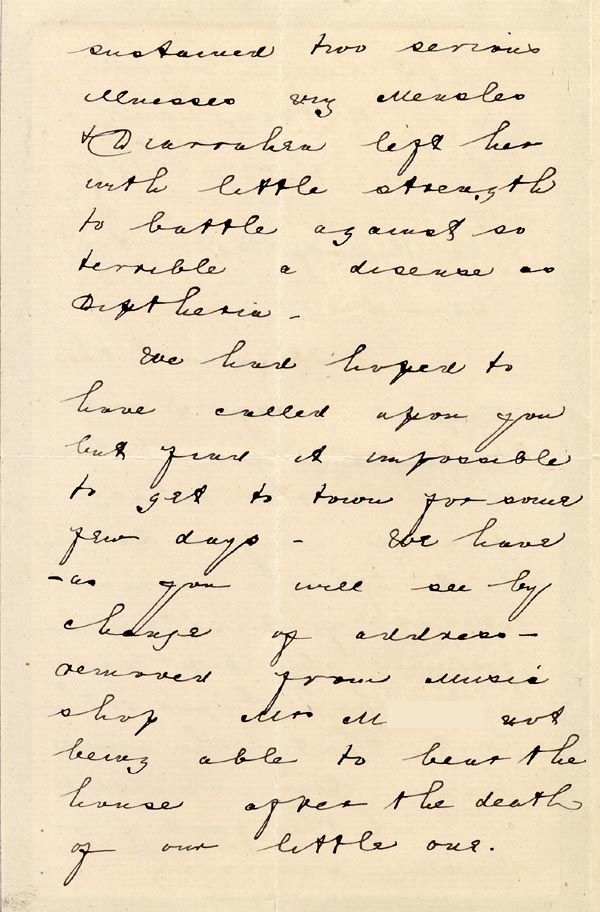 sustained two serious
illnesses viz Measles
& Diarrohea left her
with little strength
to battle against so
terrible a disease as
Diptheria -
We had hoped to
have called upon you
but find it impossible
to get to town for some
few days - We have
- as you will see by
change of address -
removed from Music
shop Mrs M not
being able to bear the
house after the death
of our little one.